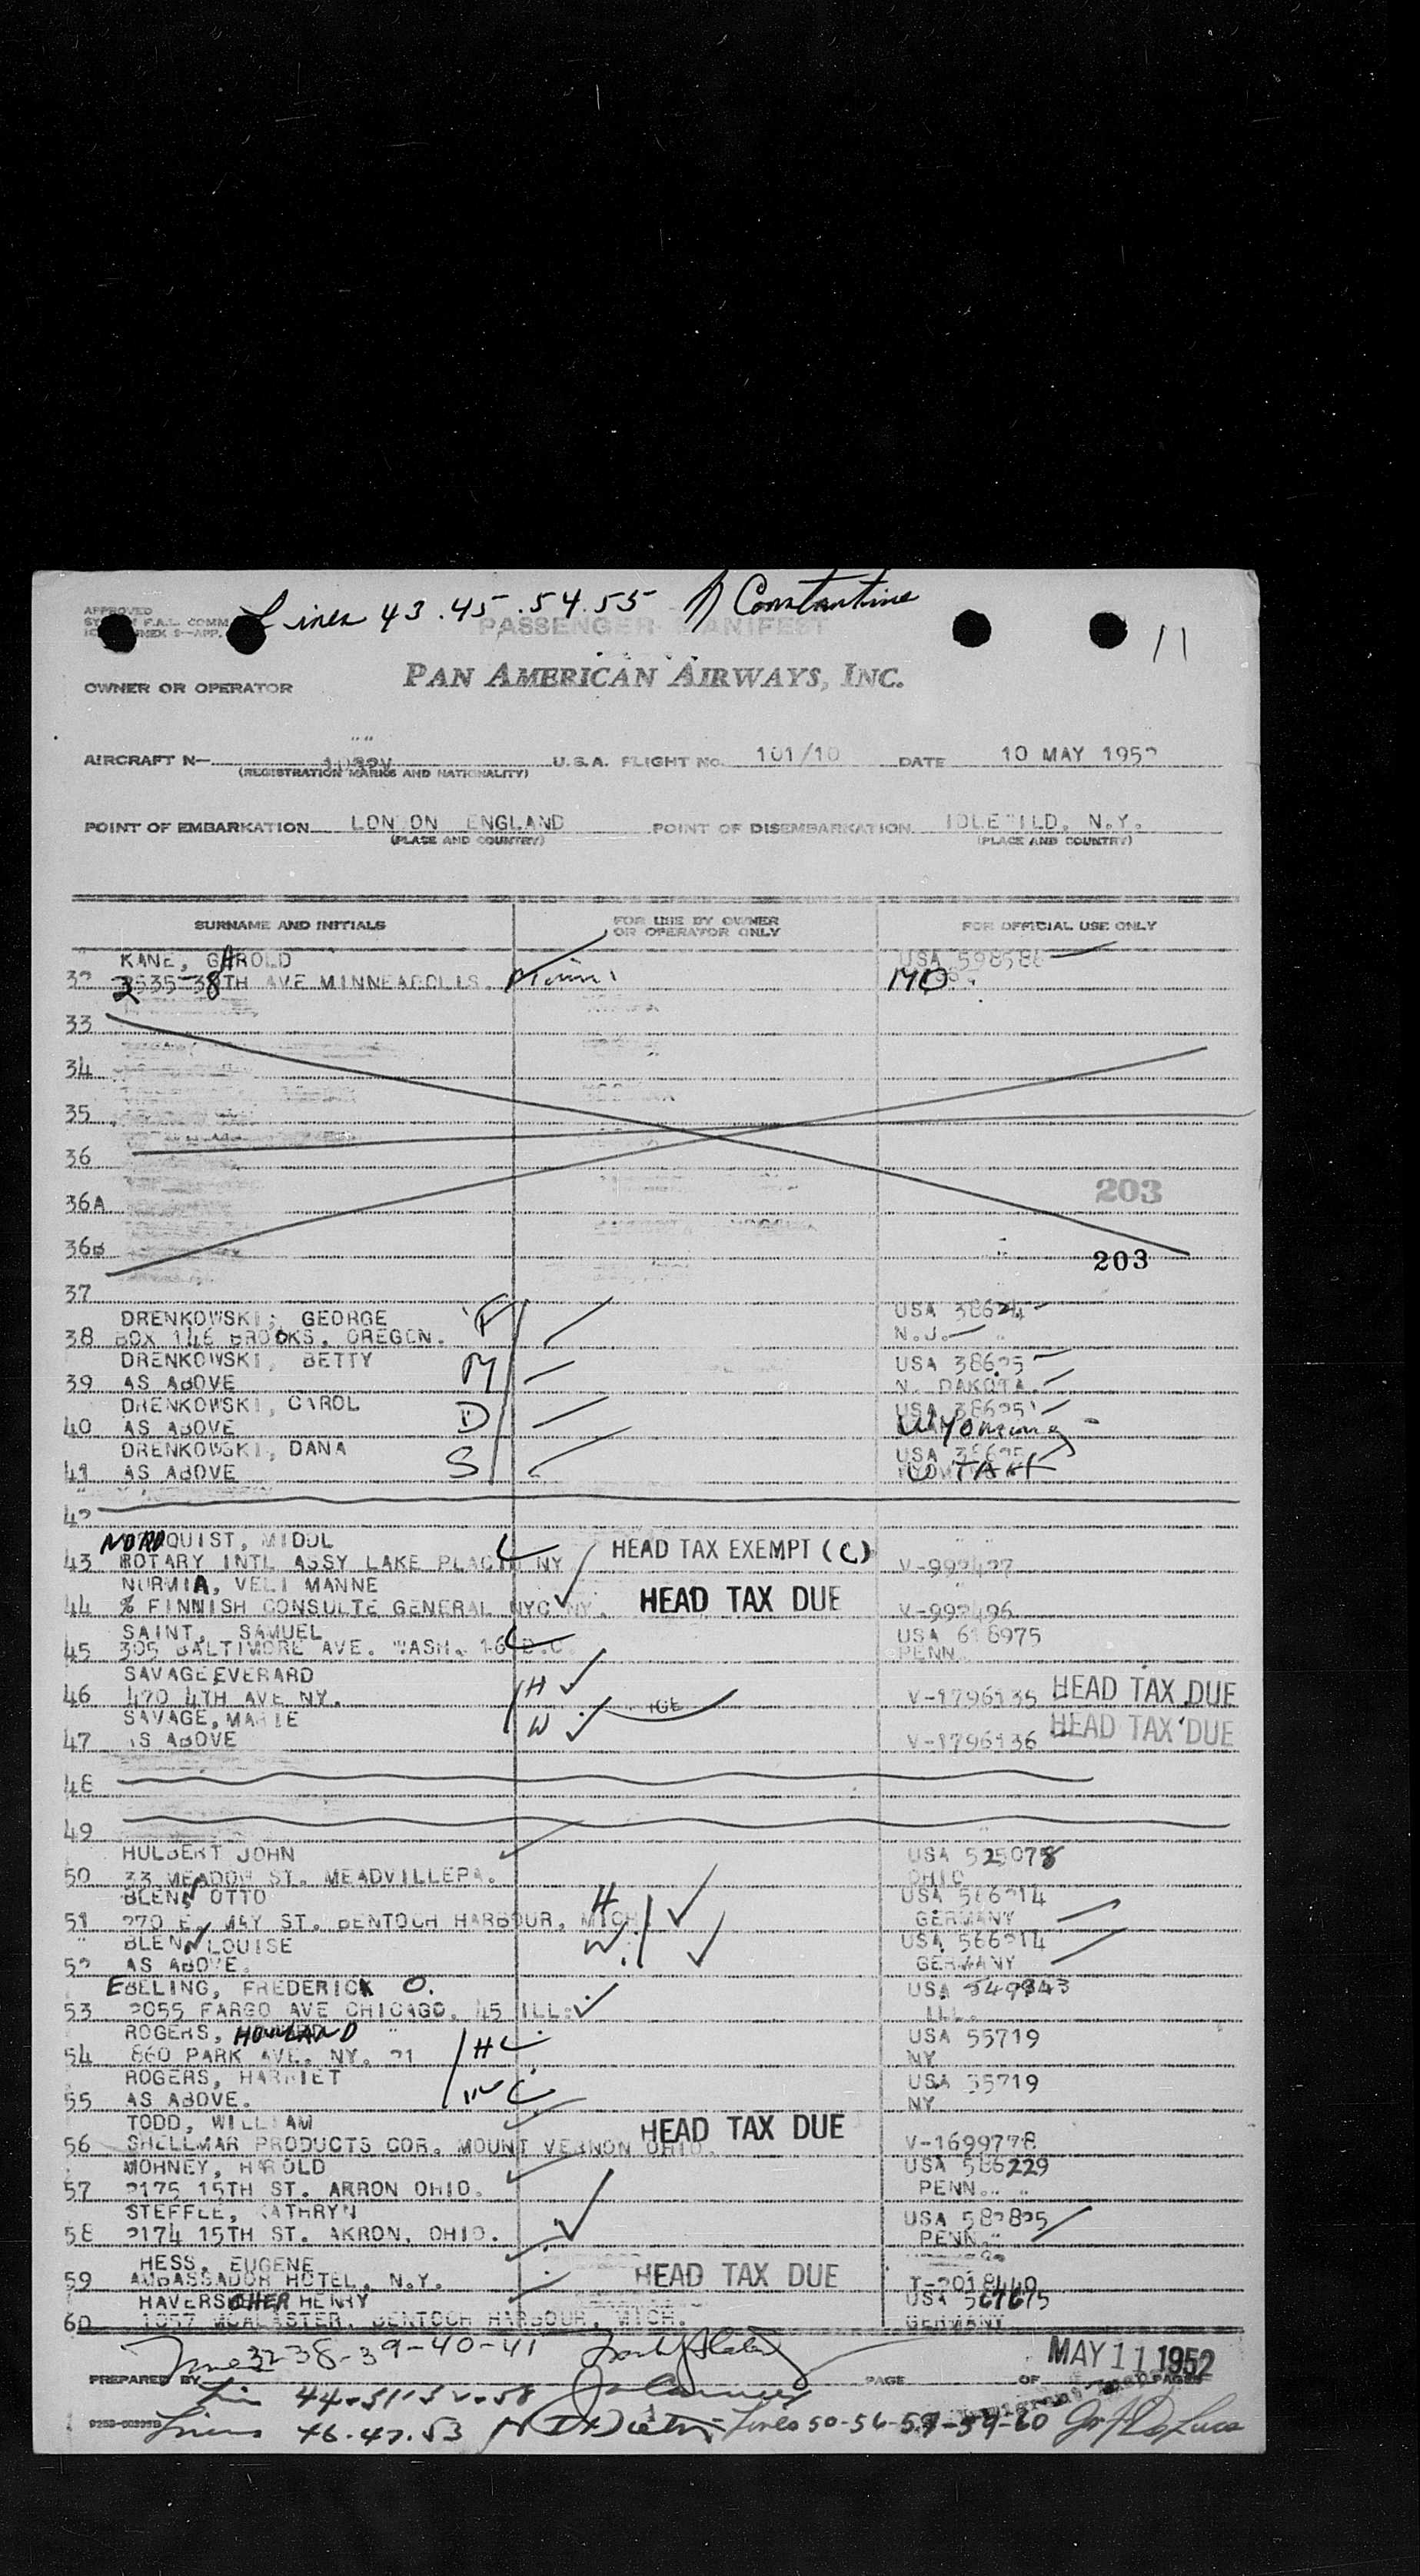 Lines 43.45.54.55 Constantine
APPROVED
PASSENGER MANIFEST
11
PAN AMERICAN AIRWAYS, INC.
OWNER OR OPERATOR
AIRCRAFT N— U.S.A. FLIGHT NO. 101/10 DATE 10 MAY 195
(REGISTRATION MARKS AND NATIONALITY)
POINT OF EMBARKATION LON ON ENGLAND POINT OF DISEMBARKATION IDLE ILD, N.Y.
(PLACE AND COUNTRY) (PLACE AND COUNTRY)
SURNAME AND INITIALS FOR USE BY OWNER OR OPERATOR ONLY FOR OFFICIAL USE ONLY
KANE, GAROLD USA
32 38TH AVE MINNEAPOLIS. Minn MO
33
34
35
36
36A 203
36B 203
37
DRENKOWSKI, GEORGE F USA 38624
38 BOX 146 BROOKS, OREGON. N.J.
DRENKOWSKI, BETTY M USA 38625
39 AS ABOVE N. DAKOTA.
DRENKOWSKI, CAROL D USA 38625
40 AS ABOVE Wyoming
DRENKOWSKI, DANA S USA
41 AS ABOVE UTAH
42
NORDQUIST, MIDOL HEAD TAX EXEMPT (C)
43 ROTARY INTL ASSY LAKE PLACID NY V-992427
NURMIA, VELI MANNE HEAD TAX DUE
44 % FINNISH CONSULTE GENERAL NYC NY. V-992496
SAINT, SAMUEL USA 618975
45 305 BALTIMORE AVE. WASH. 16 D.C. PENN
SAVAGE EVERARD H
46 470 4TH AVE NY. V-1796135 HEAD TAX DUE
SAVAGE, MARIE W
47 AS ABOVE V-1796136 HEAD TAX DUE
48
49
HULBERT JOHN USA 525078
50 33 MEADOW ST. MEADVILLEPA. OHIO
BLENN OTTO H USA 566214
51 270 E. MAY ST. BENTOCH HARBOUR, MICH GERMANY
BLENN LOUISE W. USA 566214
52 AS ABOVE. GERMANY
EBELING, FREDERICK O. USA 349343
53 2055 FARGO AVE CHICAGO, 45 ILL. ILL.
ROGERS, HOWLAND H C USA 55719
54 860 PARK AVE. NY. 21 NY
ROGERS, HARRIET W C USA 55719
55 AS ABOVE. NY
TODD, WILLIAM HEAD TAX DUE
56 SHELLMAR PRODUCTS COR. MOUNT VERNON OHIO. V-1699778
MOHNEY, HAROLD USA 586229
57 2175 15TH ST. ARRON OHIO. PENN.
STEFFLE, KATHRYN USA 582825
58 2174 15TH ST. AKRON, OHIO. PENN.
HESS, EUGENE HEAD TAX DUE
59 AMBASSADOR HOTEL, N.Y. T-2018440
HAVERSOHER HENRY USA 567675
60 1057 MCALASTER, BENTOCH HARBOUR, MICH. GERMANY
Lines 32 38-39-40-41
MAY 11 1952
PREPARED BY PAGE OF PAGES
Lin 44-51-52-58
Lines 46.47.53 Lines 50-56-57-59-60 DeLuca